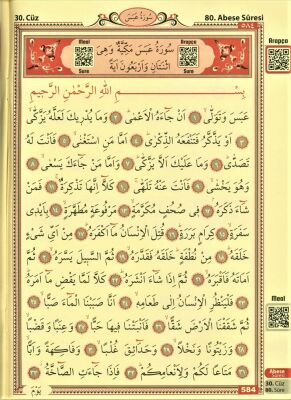 30. Cüz
سُورَةُ عَبَسَ
80. Abese Sûresi
٥٨٤
Arapça
Meal
Sure
سُورَةُ عَبَسَ مَكِّيَّةٌ وَهِيَ
اثْنَتَانِ وَأَرْبَعُونَ آيَةً
Arapça
Sure
بِسْمِ اللهِ الرَّحْمٰنِ الرَّحِيمِ
عَبَسَ وَتَوَلّٰىۙ ﴿١﴾ اَنْ جَٓاءَهُ الْاَعْمٰىۜ ﴿٢﴾ وَمَا يُدْر۪يكَ لَعَلَّهُ يَزَّكّٰىۙ
﴿٣﴾ اَوْ يَذَّكَّرُ فَتَنْفَعَهُ الذِّكْرٰىۜ ﴿٤﴾ اَمَّا مَنِ اسْتَغْنٰىۙ ﴿٥﴾ فَاَنْتَ لَهُ
تَصَدّٰىۜ ﴿٦﴾ وَمَا عَلَيْكَ اَلَّا يَزَّكّٰىۜ ﴿٧﴾ وَاَمَّا مَنْ جَٓاءَكَ يَسْعٰىۙ ﴿٨﴾
وَهُوَ يَخْشٰىۙ ﴿٩﴾ فَاَنْتَ عَنْهُ تَلَهّٰىۚ ﴿١٠﴾ كَلَّٓا اِنَّهَا تَذْكِرَةٌۚ ﴿١١﴾ فَمَنْ
شَٓاءَ ذَكَرَهُۢ ﴿١٢﴾ ف۪ي صُحُفٍ مُكَرَّمَةٍۙ ﴿١٣﴾ مَرْفُوعَةٍ مُطَهَّرَةٍۙ ﴿١٤﴾ بِاَيْد۪ي
سَفَرَةٍۙ ﴿١٥﴾ كِرَامٍ بَرَرَةٍۜ ﴿١٦﴾ قُتِلَ الْاِنْسَانُ مَٓا اَكْفَرَهُۜ ﴿١٧﴾ مِنْ اَيِّ شَيْءٍ
خَلَقَهُۜ ﴿١٨﴾ مِنْ نُطْفَةٍۜ خَلَقَهُ فَقَدَّرَهُۙ ﴿١٩﴾ ثُمَّ السَّب۪يلَ يَسَّرَهُۙ ﴿٢٠﴾ ثُمَّ
اَمَاتَهُ فَاَقْبَرَهُۙ ﴿٢١﴾ ثُمَّ اِذَا شَٓاءَ اَنْشَرَهُۜ ﴿٢٢﴾ كَلَّا لَمَّا يَقْضِ مَٓا اَمَرَهُۜ
﴿٢٣﴾ فَلْيَنْظُرِ الْاِنْسَانُ اِلٰى طَعَامِه۪ۙ ﴿٢٤﴾ اَنَّا صَبَبْنَا الْمَٓاءَ صَبًّاۙ ﴿٢٥﴾
ثُمَّ شَقَقْنَا الْاَرْضَ شَقًّاۙ ﴿٢٦﴾ فَاَنْبَتْنَا ف۪يهَا حَبًّاۙ ﴿٢٧﴾ وَعِنَبًا وَقَضْبًاۙ
﴿٢٨﴾ وَزَيْتُونًا وَنَخْلًاۙ ﴿٢٩﴾ وَحَدَٓائِقَ غُلْبًاۙ ﴿٣٠﴾ وَفَاكِهَةً وَاَبًّاۙ
﴿٣١﴾ مَتَاعًا لَكُمْ وَلِاَنْعَامِكُمْۜ ﴿٣٢﴾ فَاِذَا جَٓاءَتِ الصَّٓاخَّةُۘ ﴿٣٣﴾
يَوْمَ
584
Meal
Abese
Sûresi
30. Cüz
80. Sûre